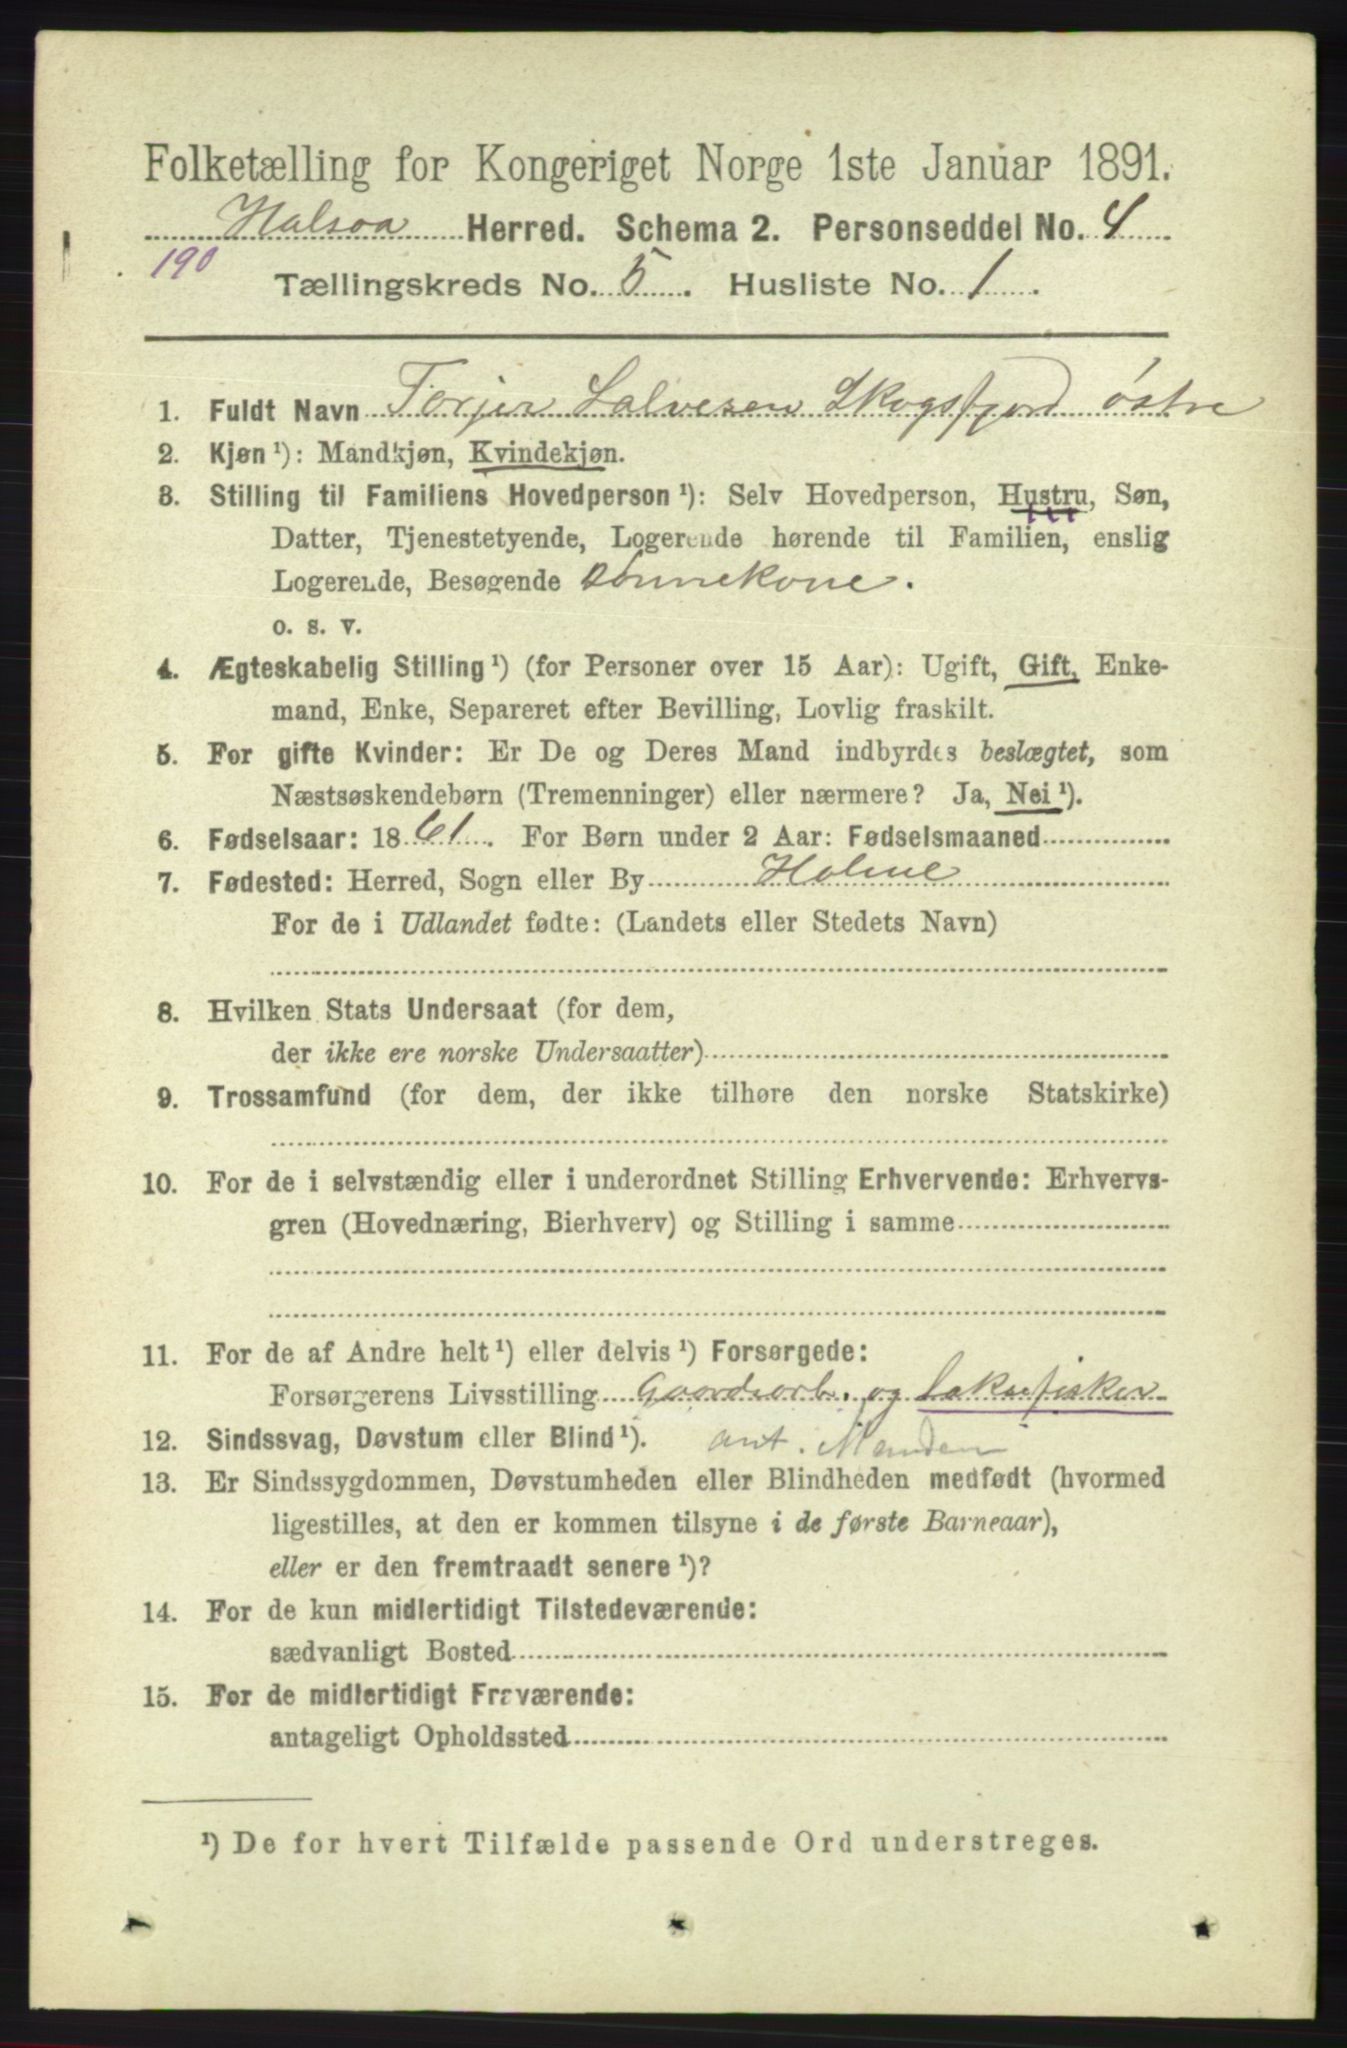 Folketælling for Kongeriget Norge 1ste Januar 1891.
Halsaa Herred. Schema 2. Personseddel No. 4
190
Tællingskreds No. 5. Husliste No. 1
1. Fuldt Navn Torjer Salvesen Skogsfjord østre
2. Kjøn¹): Mandkjøn, Kvindekjøn.
3. Stilling til Familiens Hovedperson¹): Selv Hovedperson, Hustru, Søn,
Datter, Tjenestetyende, Logerende hørende til Familien, enslig
Logerende, Besøgende Sønnekone.
o. s. v.
4. Ægteskabelig Stilling¹) (for Personer over 15 Aar): Ugift, Gift, Enke-
mand, Enke, Separeret efter Bevilling, Lovlig fraskilt.
5. For gifte Kvinder: Er De og Deres Mand indbyrdes beslægtet, som
Næstsøskendebørn (Tremenninger) eller nærmere? Ja, Nei¹).
6. Fødselsaar: 1861. For Børn under 2 Aar: Fødselsmaaned
7. Fødested: Herred, Sogn eller By Holme
For de i Udlandet fødte: (Landets eller Stedets Navn)
8. Hvilken Stats Undersaat (for dem,
der ikke ere norske Undersaatter)
9. Trossamfund (for dem, der ikke tilhøre den norske Statskirke)
10. For de i selvstændig eller i underordnet Stilling Erhvervende: Erhvervs-
gren (Hovednæring, Bierhverv) og Stilling i samme
11. For de af Andre helt¹) eller delvis¹) Forsørgede:
Forsørgerens Livsstilling Gaardsarb. og laksefisker
12. Sindssvag, Døvstum eller Blind¹). ant. Manden
13. Er Sindssygdommen, Døvstumheden eller Blindheden medfødt (hvormed
ligestilles, at den er kommen tilsyne i de første Barneaar),
eller er den fremtraadt senere¹)?
14. For de kun midlertidigt Tilstedeværende:
sædvanligt Bosted
15. For de midlertidigt Fraværende:
antageligt Opholdssted
¹) De for hvert Tilfælde passende Ord understreges.